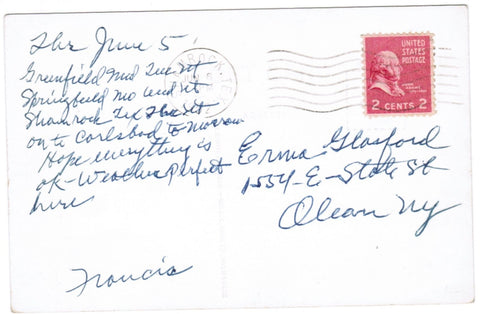 Thur June 5
Greenfield Ind Tue nt
Springfield Mo Wed nt
Shamrock Tex Thur nt
on to Carlsbad to morrow
Hope everything is
ok - Weather Perfect
here
Francis
UNITED
STATES
POSTAGE
2 CENTS 2
Erma Glasford
1554-E-State St
Olean Ny